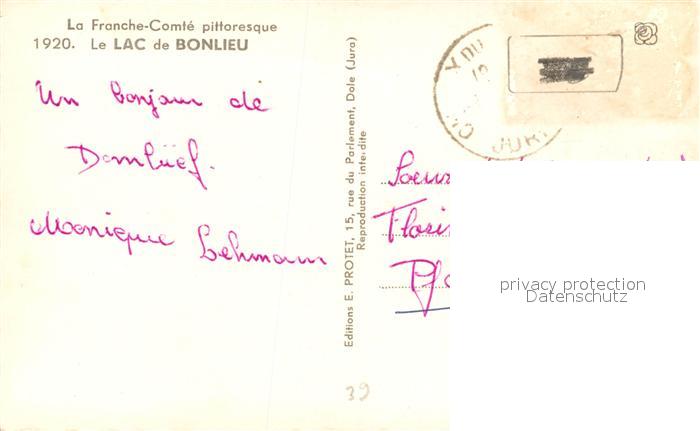 La Franche-Comté pittoresque
1920. Le LAC de BONLIEU
Un bonjour de
Monique Lehmann
Editions E. PROTET, 15, rue du Parlement, Dole (Jura)
Reproduction interdite
JURA
Soeur
39
privacy protection
Datenschutz